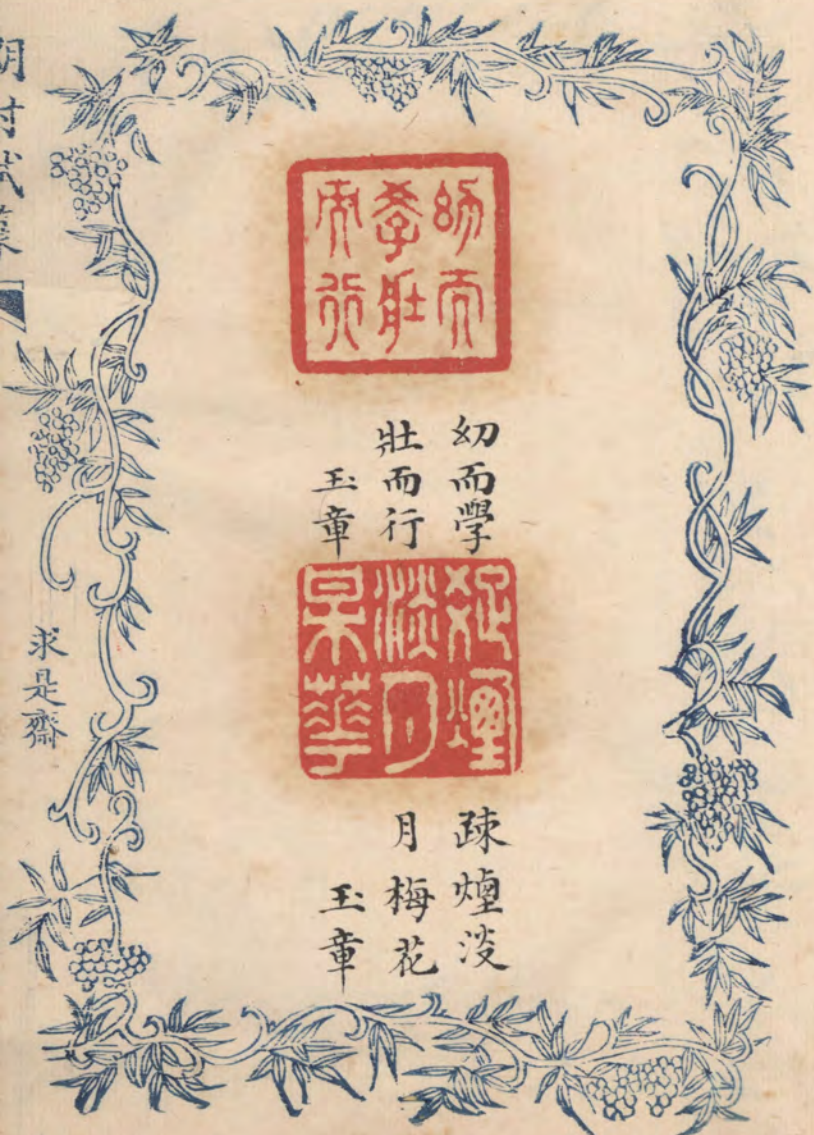 幼而
學壯
而行
幼而學
壯而行
玉章
疎煙
淡月
呆華
疎煙淡
月梅花
玉章
求是齋